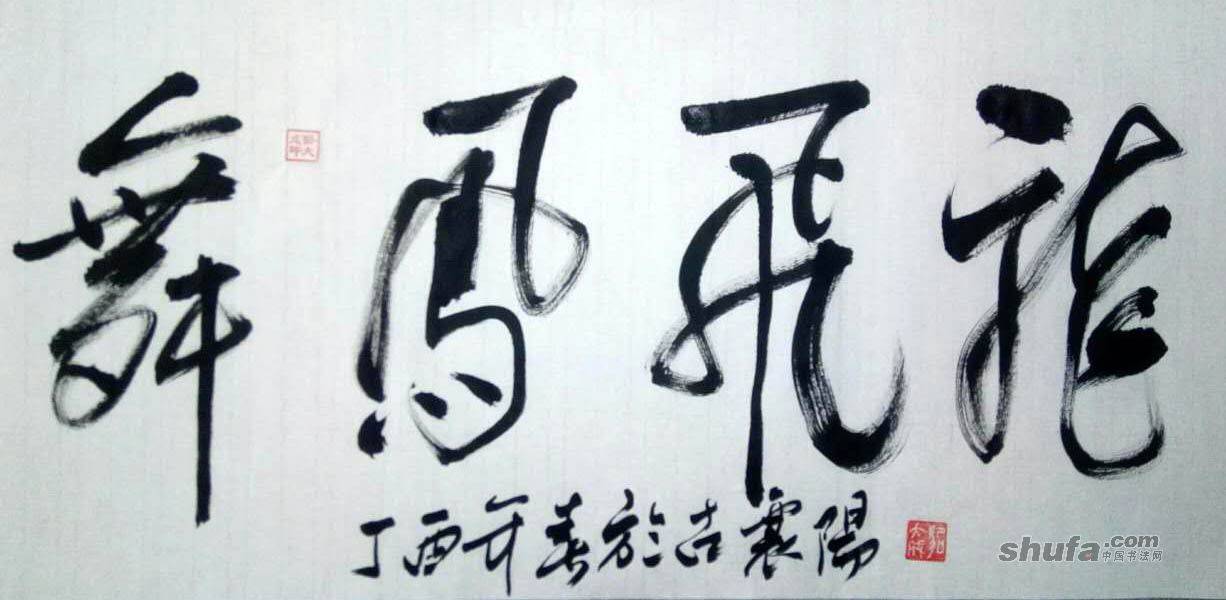 龍飛鳳舞
丁酉年春於古襄陽
shufa.com
中国书法网